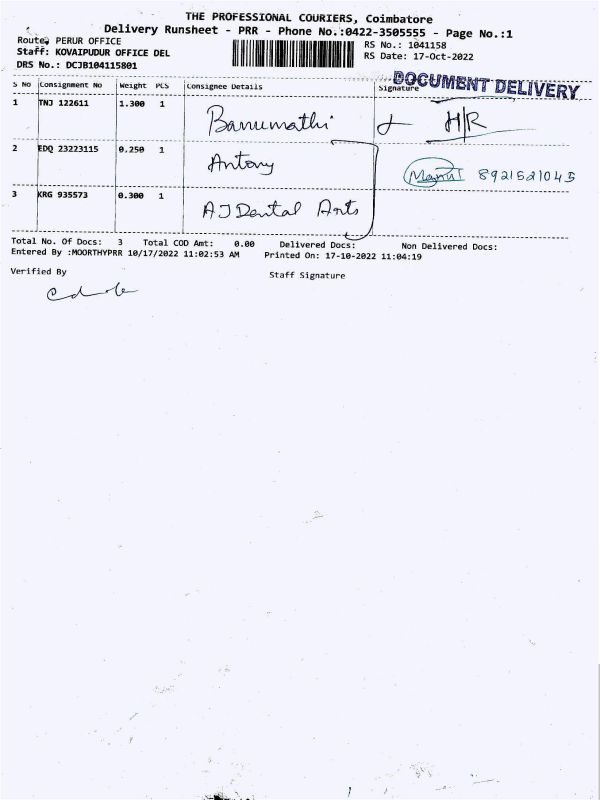 THE PROFESSIONAL COURIERS, Coimbatore
Delivery Runsheet - PRR - Phone No.:0422-3505555 - Page No.:1
Route: PERUR OFFICE
RS No.: 1041158
Staff: KOVAIPUDUR OFFICE DEL
RS Date: 17-Oct-2022
DRS No.: DCJB104115801
DOCUMENT DELIVERY
S No Consignment No Weight PCS Consignee Details Signature
1 TNJ 122611 1.300 1 Banumathi H/R
2 EDQ 23223115 0.250 1 Antony 8921521045
3 KRG 935573 0.300 1 AJ Dental Arts
Total No. Of Docs: 3 Total COD Amt: 0.00 Delivered Docs: Non Delivered Docs:
Entered By :MOORTHYPRR 10/17/2022 11:02:53 AM Printed On: 17-10-2022 11:04:19
Verified By
Staff Signature